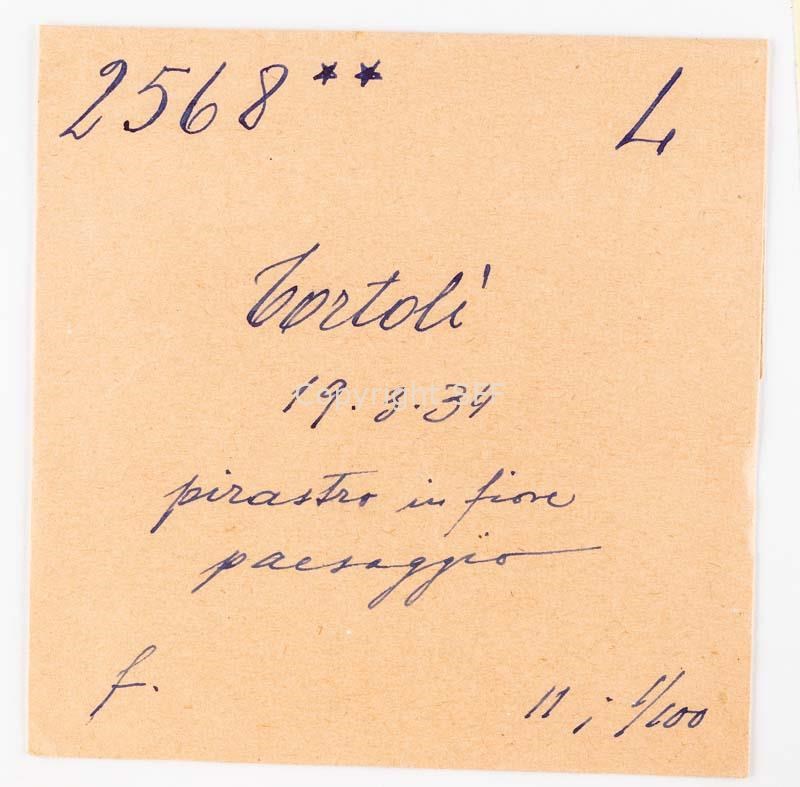 2568** L
Tortolì
19.3.34
pirastro in fiore
paesaggio
f. 11 ; 1/100